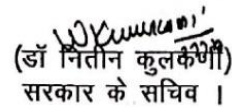 (डॉ नितीन कुलकर्णी)
सरकार के सचिव ।